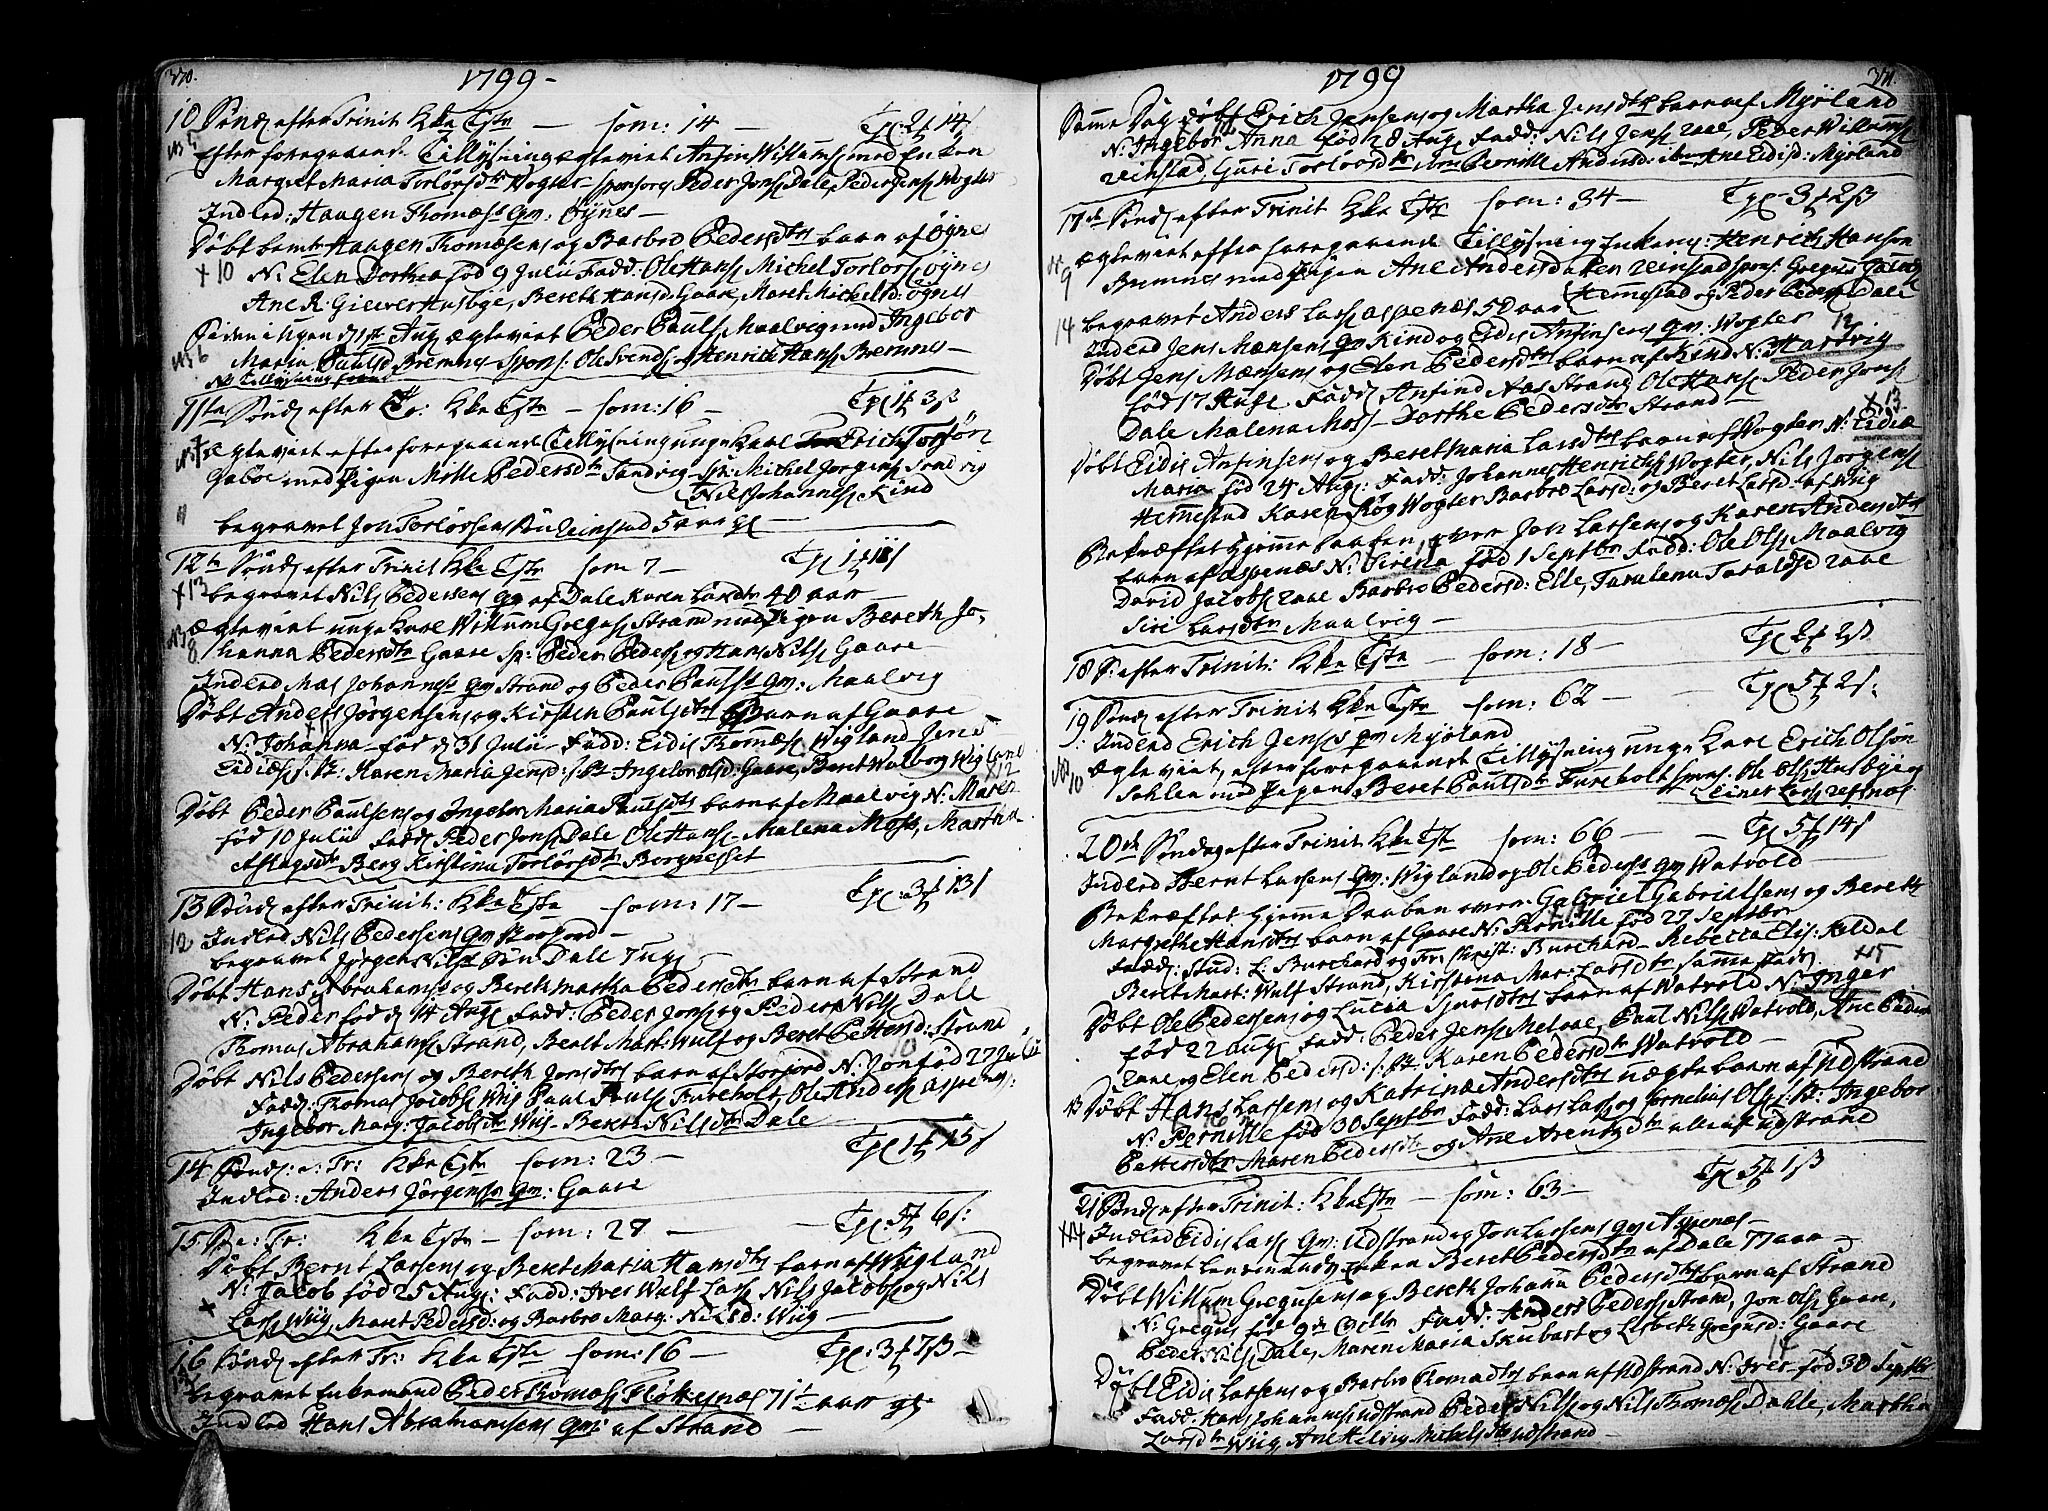 370.
1799-
10 Sønd. efter Trinit Kke Tstn — com: 14 — Tgl: 2 # 14 s
No 5 Efter foregaaende Tillysning ægteviet Anfin Willumss med Enken
Margret Maria Torlorsdtr Wogter — sponsores Peder Jonss Dale, Peder Jenss Wogter
Indled: Haagen Thomæss Qv: Øynes —
Døbt bem: Haagen Thomæsens og Barbro Pedersdtrs barn af Øynes
+ 10 N: Elen Dorthea fød 9 Julii Fadd: Ole Hanss Michel Torlorss Øynes
Ane R: Giæver Husbye, Bereth Hansd: Gaare, Maret Michelsd: Øynes
Siden i Ugen d 1ste Aug ægteviet Peder Paulss Maalvig med Ingebor
No 6 Maria Paulsd Bremnes spons: Ole Svendss og Henrich Hanss Bremnes —
11te Sønd. efter Tr: Kke Tstn — com: 16 — Tgl 1 # 3 ß
No 7 Ægteviet efter foregaaende Tillysning unge Karl Erich Torjør
Gaboe med Pigen Melle Pedersdtr Sandvig — sp: Michel Jørgenss Sandvig
Nils Johanness Kind
11 begravet Jon Torlorsen Reinstad 5 aar gl —
12te Sønd. efter Trinit Kke Tstn com 7 — Tgl 1 # 11 s
+ 13 begravet Nils Pedersens Qv af Dale Karen Larsdtr 40 aar —
No 8 Ægteviet unge Karl Willum Gregess Strand med Pigen Bereth Jo-
hanna Pedersdtr Gaare Sp: Peder Pederss og Hans Nilss Gaare —
Indled Mas Johanness Qv Strand og Peder Paulss Qv: Maalvig
Døbt Anders Jørgensens og Kirsten Paulsdtrs Barn af Gaare
N: Johanna — fød d 31 Julii — Fadd: Eidis Thomæss Wigland Jens
Eidiss s: st: Karen Maria Jensd: s: st Ingebor Olsd: Gaare, Beret Walborg Wigland
Døbt Peder Paulsens og Ingebor Maria Paulsdtrs barn af Maalvig N: Maren + 12
fød 10 Julii Fadd Peder Jonss Dale Ole Hanss — Malena Moss, Martha
Aslagsdtr Berg Kirstina Torlorsdtr Borgneset
13 Sønd. efter Trinit: Kke Tstn com: 17 — Tgl: 3 # 13 s
Indled Nils Pedersens Qv Storjord —
12 begravet Jørgen Nilss Søn Dale 7 ug —
Døbt Hans Abrahamss og Beret Martha Pedersdtrs barn af Strand
N: Peder fød d 14 Aug Fadd: Peder Jonss og Peder Nilss Dale
Thomas Abrahamss Strand, Beret Mart: Wulf og Beret Pettersd: Strand
Døbt Nils Pedersens og Bereth Jonsdtrs barn af Storjord N: Jon fød 27 Julii
Fadd: Thomas Jacobss Wiig Paul Paulss Fureholt, Ole Anderss Aspenes:
Ingebor Marg: Jacobsdtr Wiig — Bereth Nilsdtr Dale
14 Sønd: e: Tr: Kke Tstn com: 23 — Tgl 1 # 15 s
Indled: Anders Jørgenss Qv: Gaare
15 S: e: Tr: Kke Tstn — com: 27 — Tgl: 5 # 6 s:
Døbt Bernt Larsens og Beret Maria Hansdtrs barn af Wigland
+ N: Jacob fød 25 Aug: Fadd: Iver Wulf Larss Nils Jacobss og Nils
Larss Wiig, Maret Pedersd: og Barbro Marg: Nilsd: Wiig —
16 Sønd. efter Tr: Kke Tstn com: 16 — Tgl: 3 # 7 ß —
begravet Enkemand Peder Thomæss Fløkesnæs 71½ aar gl
Indled Hans Abrahamsens Qv: af Strand —
371.
1799
Samme Dag døbt Erich Jensens og Martha Jensdtrs barn af Myrland
N: Ingebor Anna fød 28 Aug Fadd: Nils Jenss Raae, Peder Willumss
Reinstad, Guri Torlorsdtr Pernille Andersd: Ane Eidisd: Myrland
17de Sønd. efter Trinit Kke Tstn com: 34 — Tgl — 3 # 2 ß
No 9 Ægteviet efter foregaaende Tillysning Enkem: Henrich Hansen
Bremnes med Pigen Ane Andersdatter Reinstad spons: Gregus Jacobs
Hemmestad og Peder Pederss Dale
14 begravet Anders Larss Aspenæs 50 aar
Indled Jens Mænsens Qv Kind og Eidis Anfinsens Qv: Wogter 12
Døbt Jens Mænsens og Elen Pedersdtrs barn af Kind N: Hartvig
fød 17 Huse Fadd Anfind Aas Strand Ole Hanss Peder Jonss
Dale Malena Moss — Dorthe Pedersdtr Strand — + 13
Døbt Eidis Anfinsens og Beret Maria Larsdtrs barn af Wogter N: Eidis
Maria fød 24 Aug: Fadd: Johannes Henrichss Wogter, Nils Jørgenss
Hemmestad Karen Røg Wogter Barbro Larsd: og Beret Larsd: af Wiig
Bekræftet hjemme daaben over Jon Larsens og Karen Andersdtrs
barn af Aspenæs N: Sirena fød 1 Septbr Fadd: Ole Olss Maalvig
David Jacobss Raae Barbro Pedersd: Elle, Tarulena Taraldsd Raae
Siri Larsdtr Maalvig —
18 S: efter Trinit: Kke Tstn — com: 18 — Tgl 2 # 2 ß
19 Sønd. efter Trinit Kke Tstn com: 62 — Tgl 5 # 2 s:
Indled Erich Jenss Qv Myrland
No 10 Ægteviet, efter foregaaende Tillysning unge Karl Erich Olsøn
Sohlen med Pigen Beret Paulsdtr Fureholt spons: Ole Olss Husbye og
Einer Larss Refsnæs
20de Søndag efter Trinit Kke Tstn com: 66 — Tgl 5 # 14 s
Indled Bernt Larsens Qv: Wigland og Ole Pederss Qv Watvold —
Bekræftet hjemme Daaben over Gabriel Gabrielsens og Bereth
Margrethe Hansdtrs barn af Gaare N: Pernille fød 27 Septbr
Fadd: Stud: L: Burchard og Fru Christ: Burchard — Rebecca Elis: Heldal
Beret Mart: Wulf Strand, Kirstina Mar: Larsdtr samme stæd + 15
Døbt Ole Pedersens og Lucia Sjursdtrs barn af Watvold N: Inger
fød 22 Aug Fadd: Peder Jenss Meloae, Paul Nilss Watvold, Ane Peders
Raae og Elen Pedersd: s: st: Karen Pedersdtr Watvold —
13 Døbt Hans Larsens og Katrinæ Andersdtrs uægte barn af Udstrand
N: Pernille fød 30 Septbr Fadd: Lars Larss og Cornelius Olss s: st: Ingebor
Pettersdtr Maren Pedersdtr og Ane Arentsdtr alle af Udstrand
21 Sønd. efter Trinit: Kke Tstn — com: 63 — Tgl 5 # 1 ß
+ 14 Indled Eidis Larss Qv: Udstrand og Jon Larsens Qv Aspenæs —
begravet Enken Beret Pedersdtr af Dale 77 aar —
Døbt Willum Gregusens og Bereth Johana Pedersdtrs barn af Strand
N: Gregus fød 9de Octbr Fadd: Anders Pederss Strand, Jon Olss Gaare,
Peder Nilss Dale, Maren Maria Skubart og Lisbeth Gregusd: Gaare
Døbt Eidis Larsens og Barbro Thomædtrs barn af Udstrand N: Iver fød 30 Septbr
Fadd: Hans Johanness Udstrand Peder Nilss og Nils Thomæss Dahle, Martha
Larsdtr Wiig, Ane Helvig Michelsdtr Udstrand —